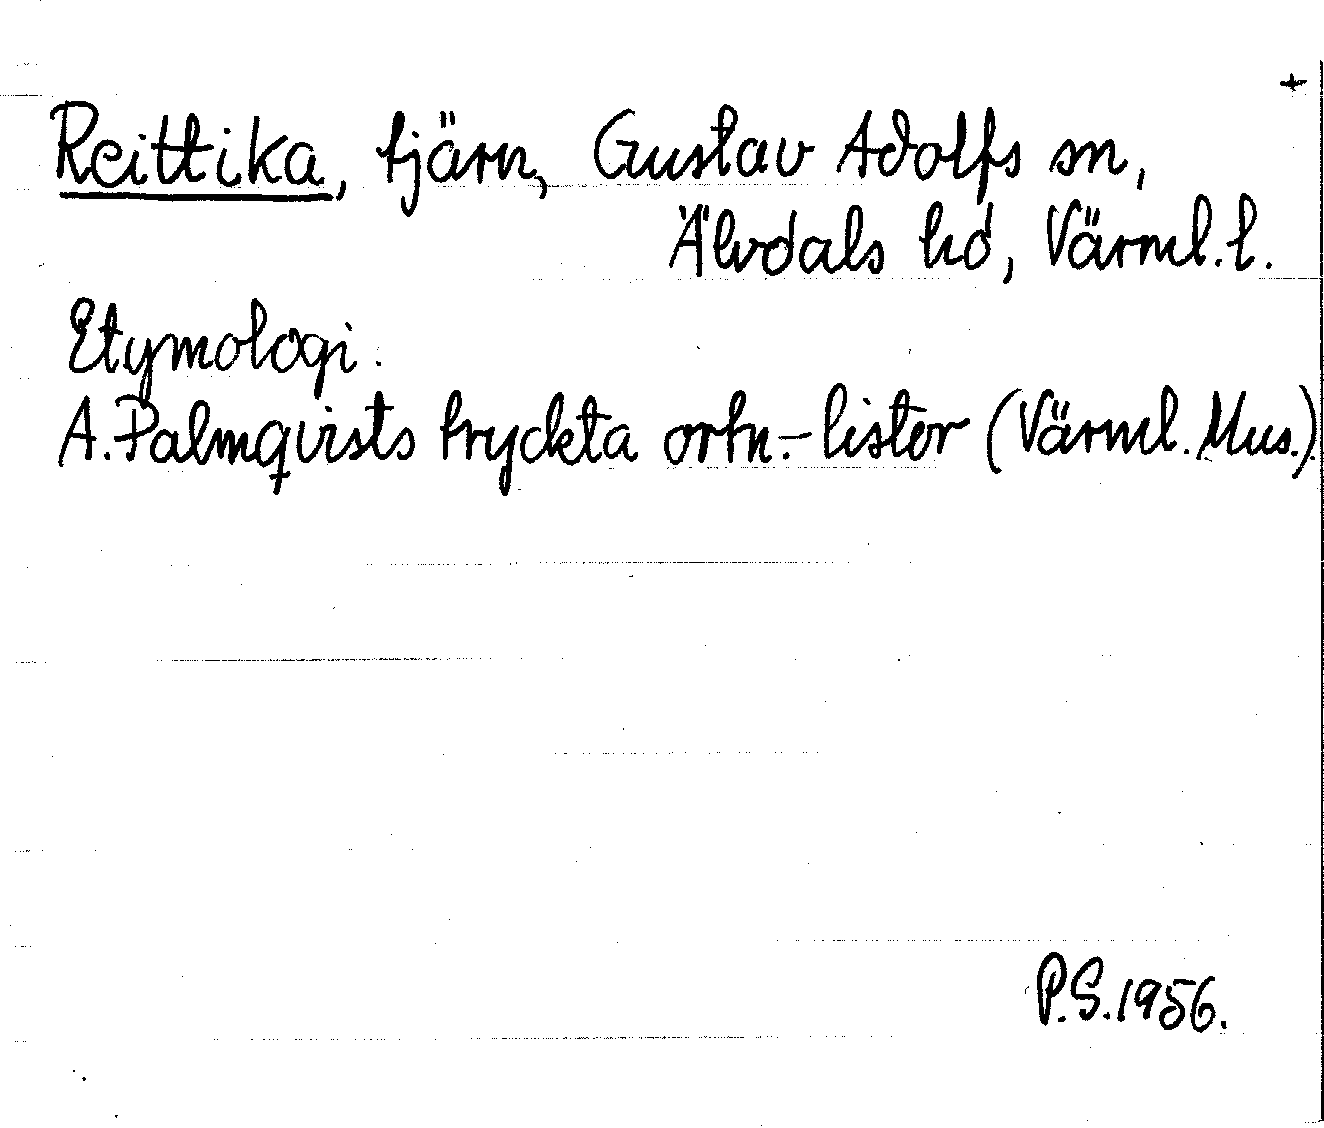 +
Reittika, tjärn, Gustav Adolfs sn,
Älvdals hd, Värml. l.
Etymologi.
A. Palmqvists tryckta ortn.-listor (Värml. Mus.).
P.S. 1956.